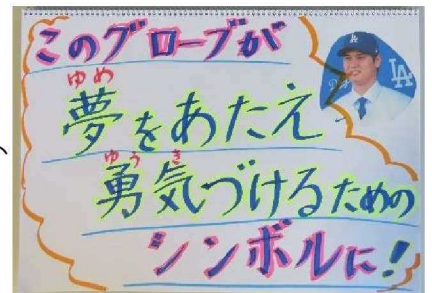 このグローブが
ゆめ
夢をあたえ
ゆうき
勇気づけるための
シンボルに!
LA